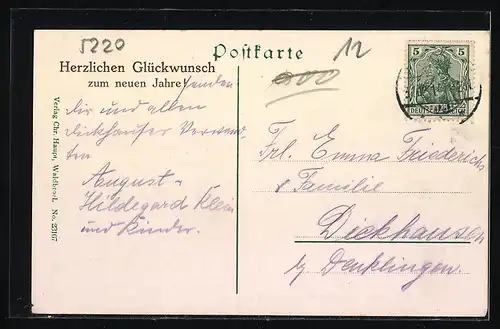 5220
Postkarte
12
5
5
Herzlichen Glückwunsch
zum neuen Jahre! senden
dir und allen
Dickhauser Verwand-
ten
August
Hildegard Klein
und Kinder.
Verlag Chr. Haupt, Waldbroel. No. 23167
Frl. Emma Friederichs
& Familie
Dickhausen
by Denklingen.